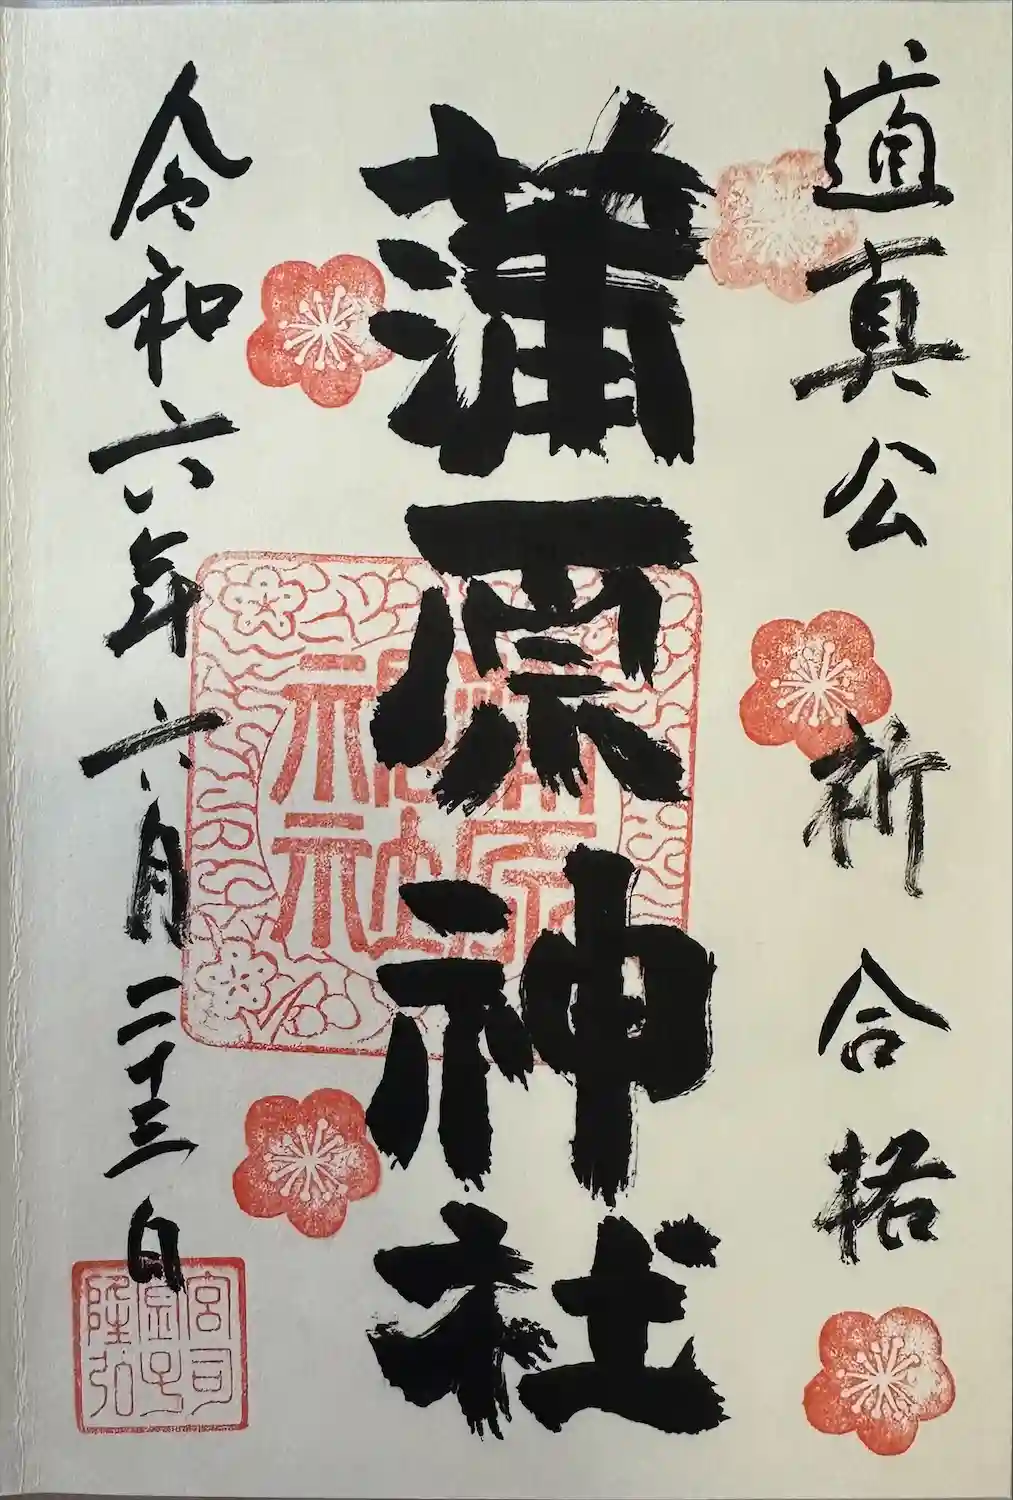 道真公 祈 合格
蒲原神社
蒲原
神社
令和六年六月二十三日
宮司
金子
隆弘